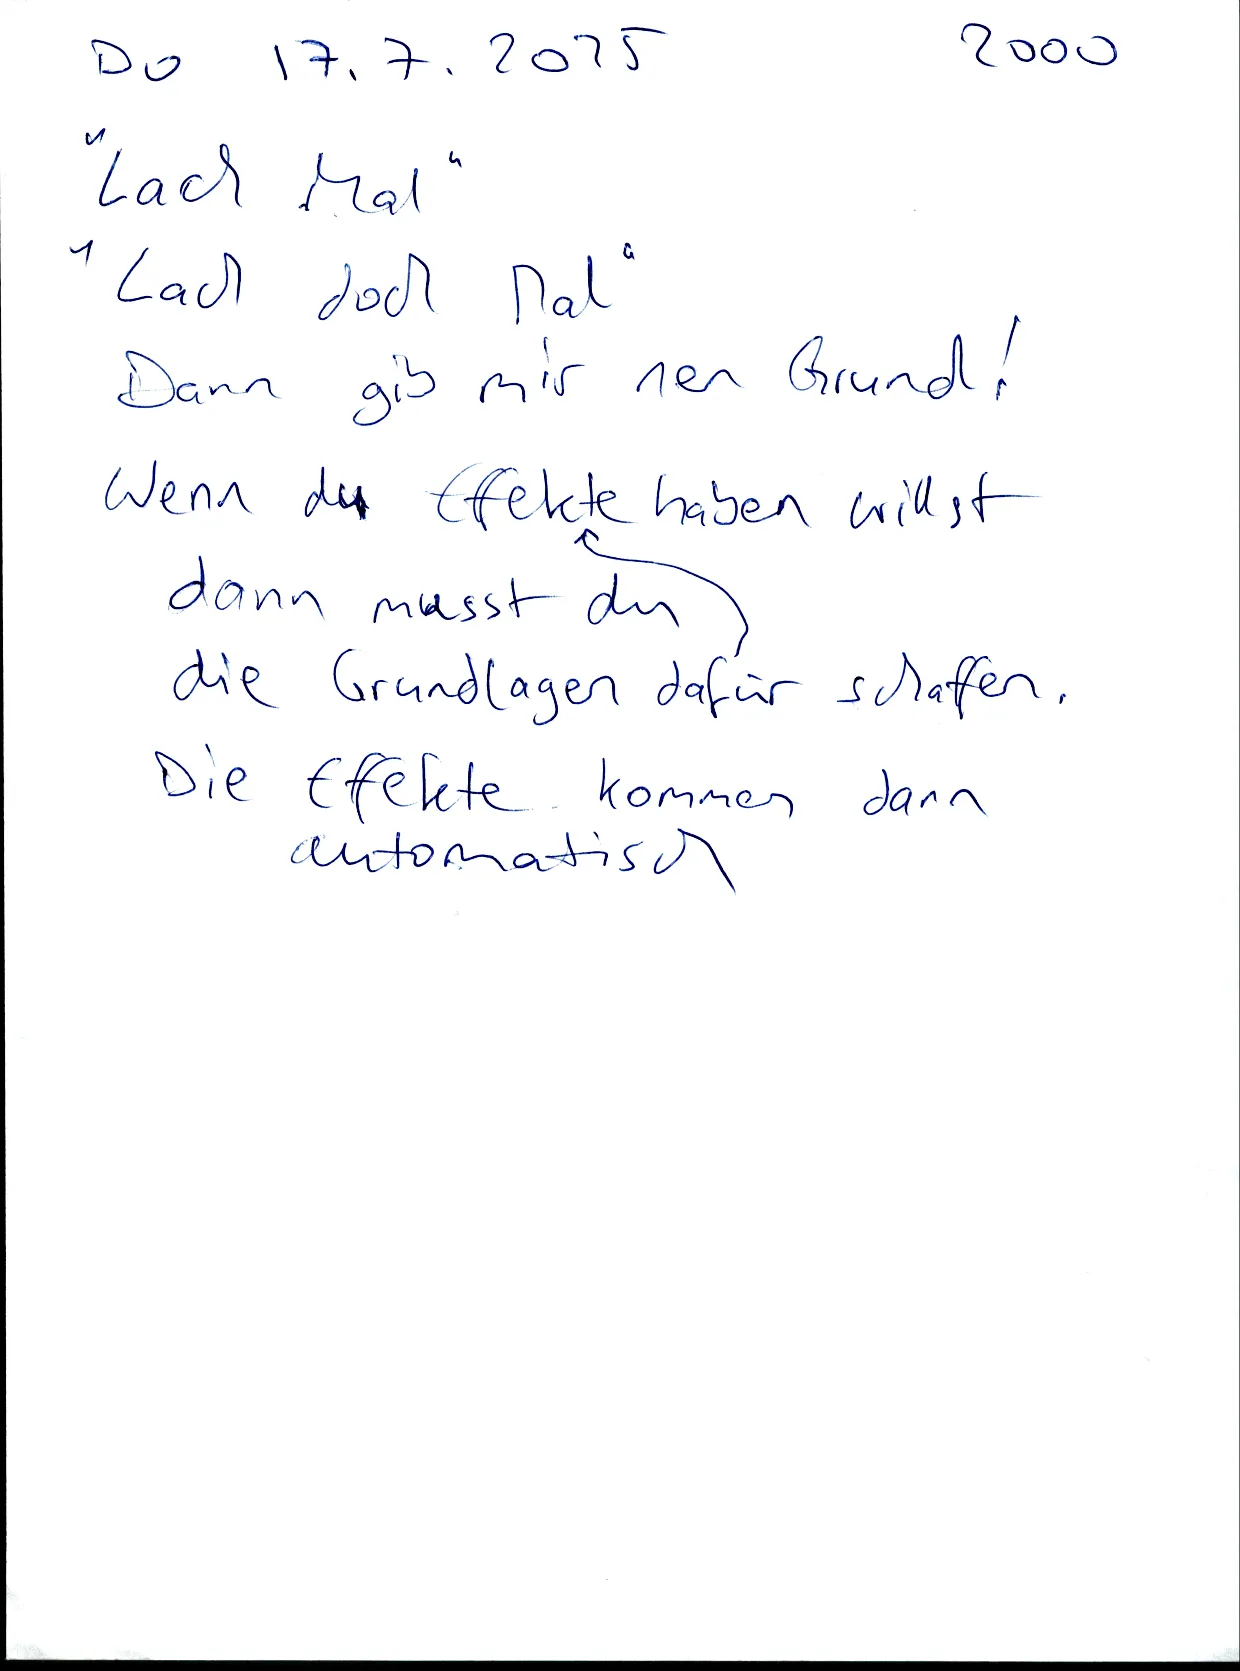 Do 17.7.2025 2000
"Lach Mal"
"Lach doch Mal"
Dann gib mir nen Grund!
Wenn du Effekte haben willst
dann musst du
die Grundlagen dafür schaffen.
Die Effekte kommen dann
automatisch